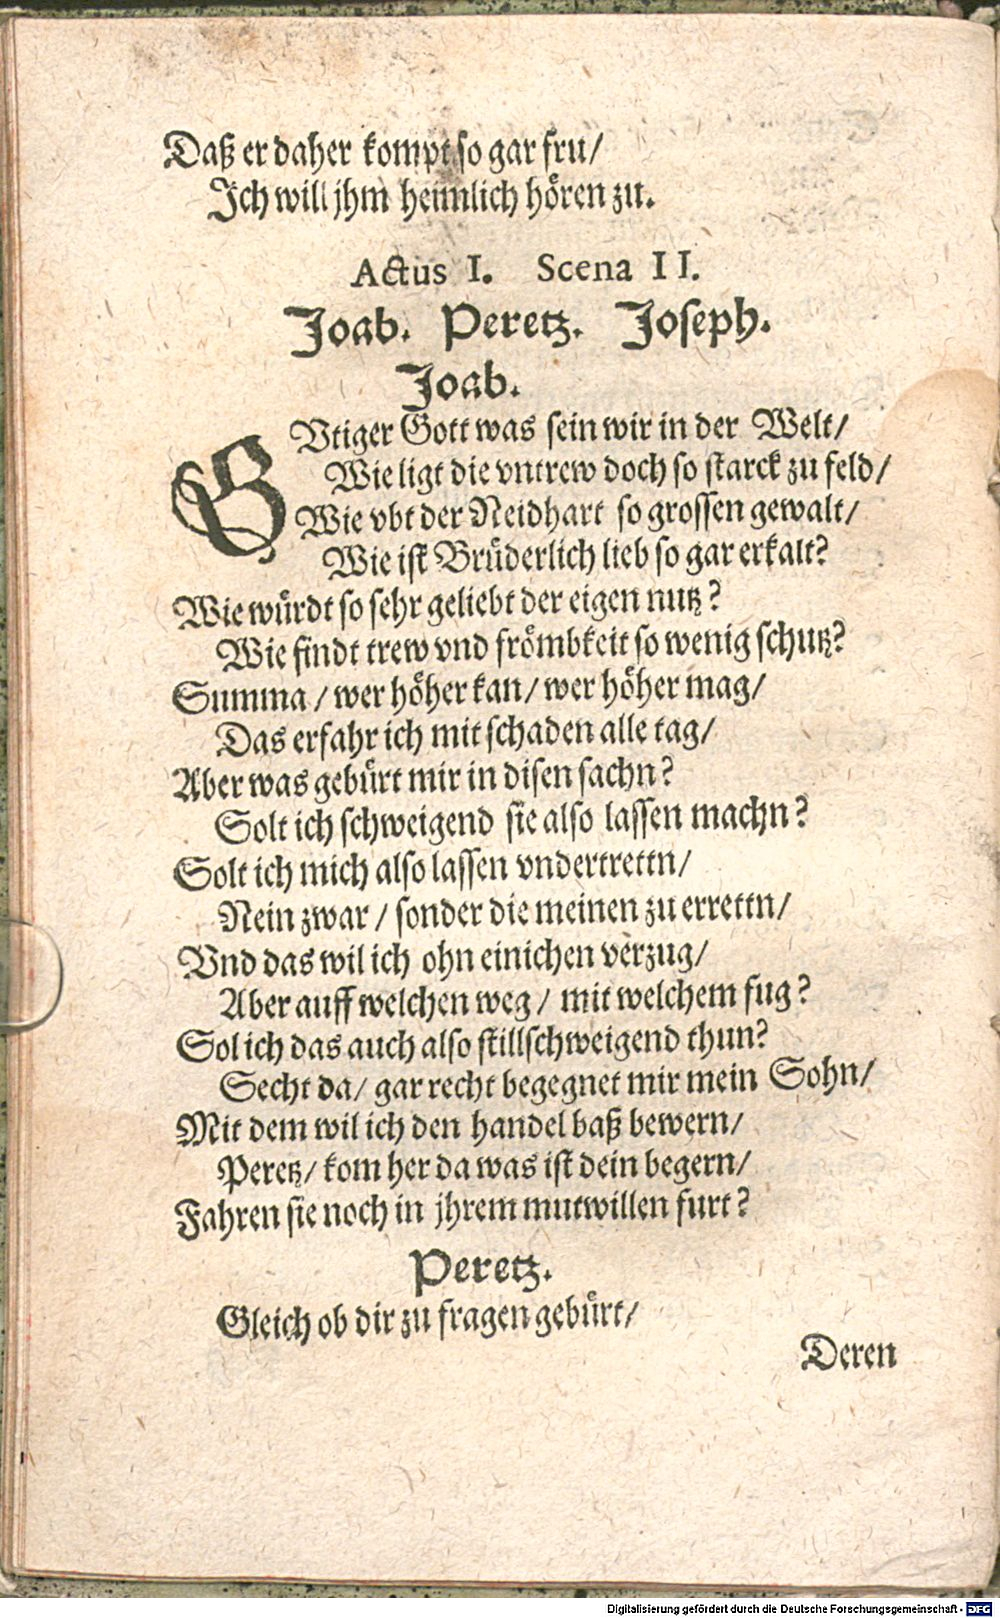 Daß er daher kompt so gar fru/
Ich will jhm heimlich hören zu.
Actus I. Scena II.
Joab. Peretz. Joseph.
Joab.
GVtiger Gott was sein wir in der Welt/
Wie ligt die vntrew doch so starck zu feld/
Wie vbt der Neidhart so grossen gewalt/
Wie ist Brüderlich lieb so gar erkalt?
Wie würdt so sehr geliebt der eigen nutz?
Wie findt trew vnd frömbkeit so wenig schutz?
Summa/ wer höher kan/ wer höher mag/
Das erfahr ich mit schaden alle tag/
Aber was gebürt mir in disen sachn?
Solt ich schweigend sie also lassen machn?
Solt ich mich also lassen vndertrettn/
Nein zwar/ sonder die meinen zu errettn/
Vnd das wil ich ohn einichen verzug/
Aber auff welchen weg/ mit welchem fug?
Sol ich das auch also stillschweigend thun?
Secht da/ gar recht begegnet mir mein Sohn/
Mit dem wil ich den handel baß bewern/
Peretz/ kom her da was ist dein begern/
Fahren sie noch in jhrem mutwillen furt?
Peretz.
Gleich ob dir zu fragen gebürt/
Deren
Digitalisierung gefördert durch die Deutsche Forschungsgemeinschaft - DFG